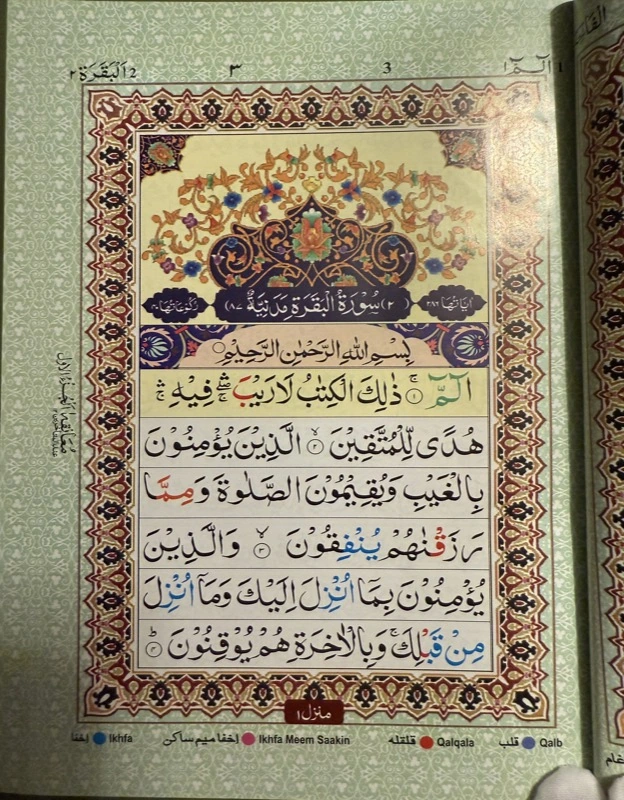 الٓمّٓ ١
3
٣
2 اَلْبَقَرَة ٢
اٰيَاتُهَا ٢٨٦
(٢) سُوْرَةُ الْبَقَرَةِ مَدَنِيَّةٌ (٨٧)
رُكُوْعَاتُهَا ٤٠
بِسْمِ اللهِ الرَّحْمٰنِ الرَّحِيْمِ
الٓمّٓ ۚ﴿١﴾ ذٰلِكَ الْكِتٰبُ لَا رَيْبَ ۛۖ فِيْهِ ۛۚ
هُدًى لِّلْمُتَّقِيْنَ ۙ﴿٢﴾ الَّذِيْنَ يُؤْمِنُوْنَ
بِالْغَيْبِ وَيُقِيْمُوْنَ الصَّلٰوةَ وَمِمَّا
رَزَقْنٰهُمْ يُنْفِقُوْنَ ۙ﴿٣﴾ وَالَّذِيْنَ
يُؤْمِنُوْنَ بِمَآ اُنْزِلَ اِلَيْكَ وَمَآ اُنْزِلَ
مِنْ قَبْلِكَ ۚ وَبِالْاٰخِرَةِ هُمْ يُوْقِنُوْنَ ؕ﴿٤﴾
مُعَانَقَة الْجُزْءُ الْاَوَّل
منزل ١
قلب Qalb
قلقله Qalqala
اِخفا میم ساکن Ikhfa Meem Saakin
اِخفا Ikhfa